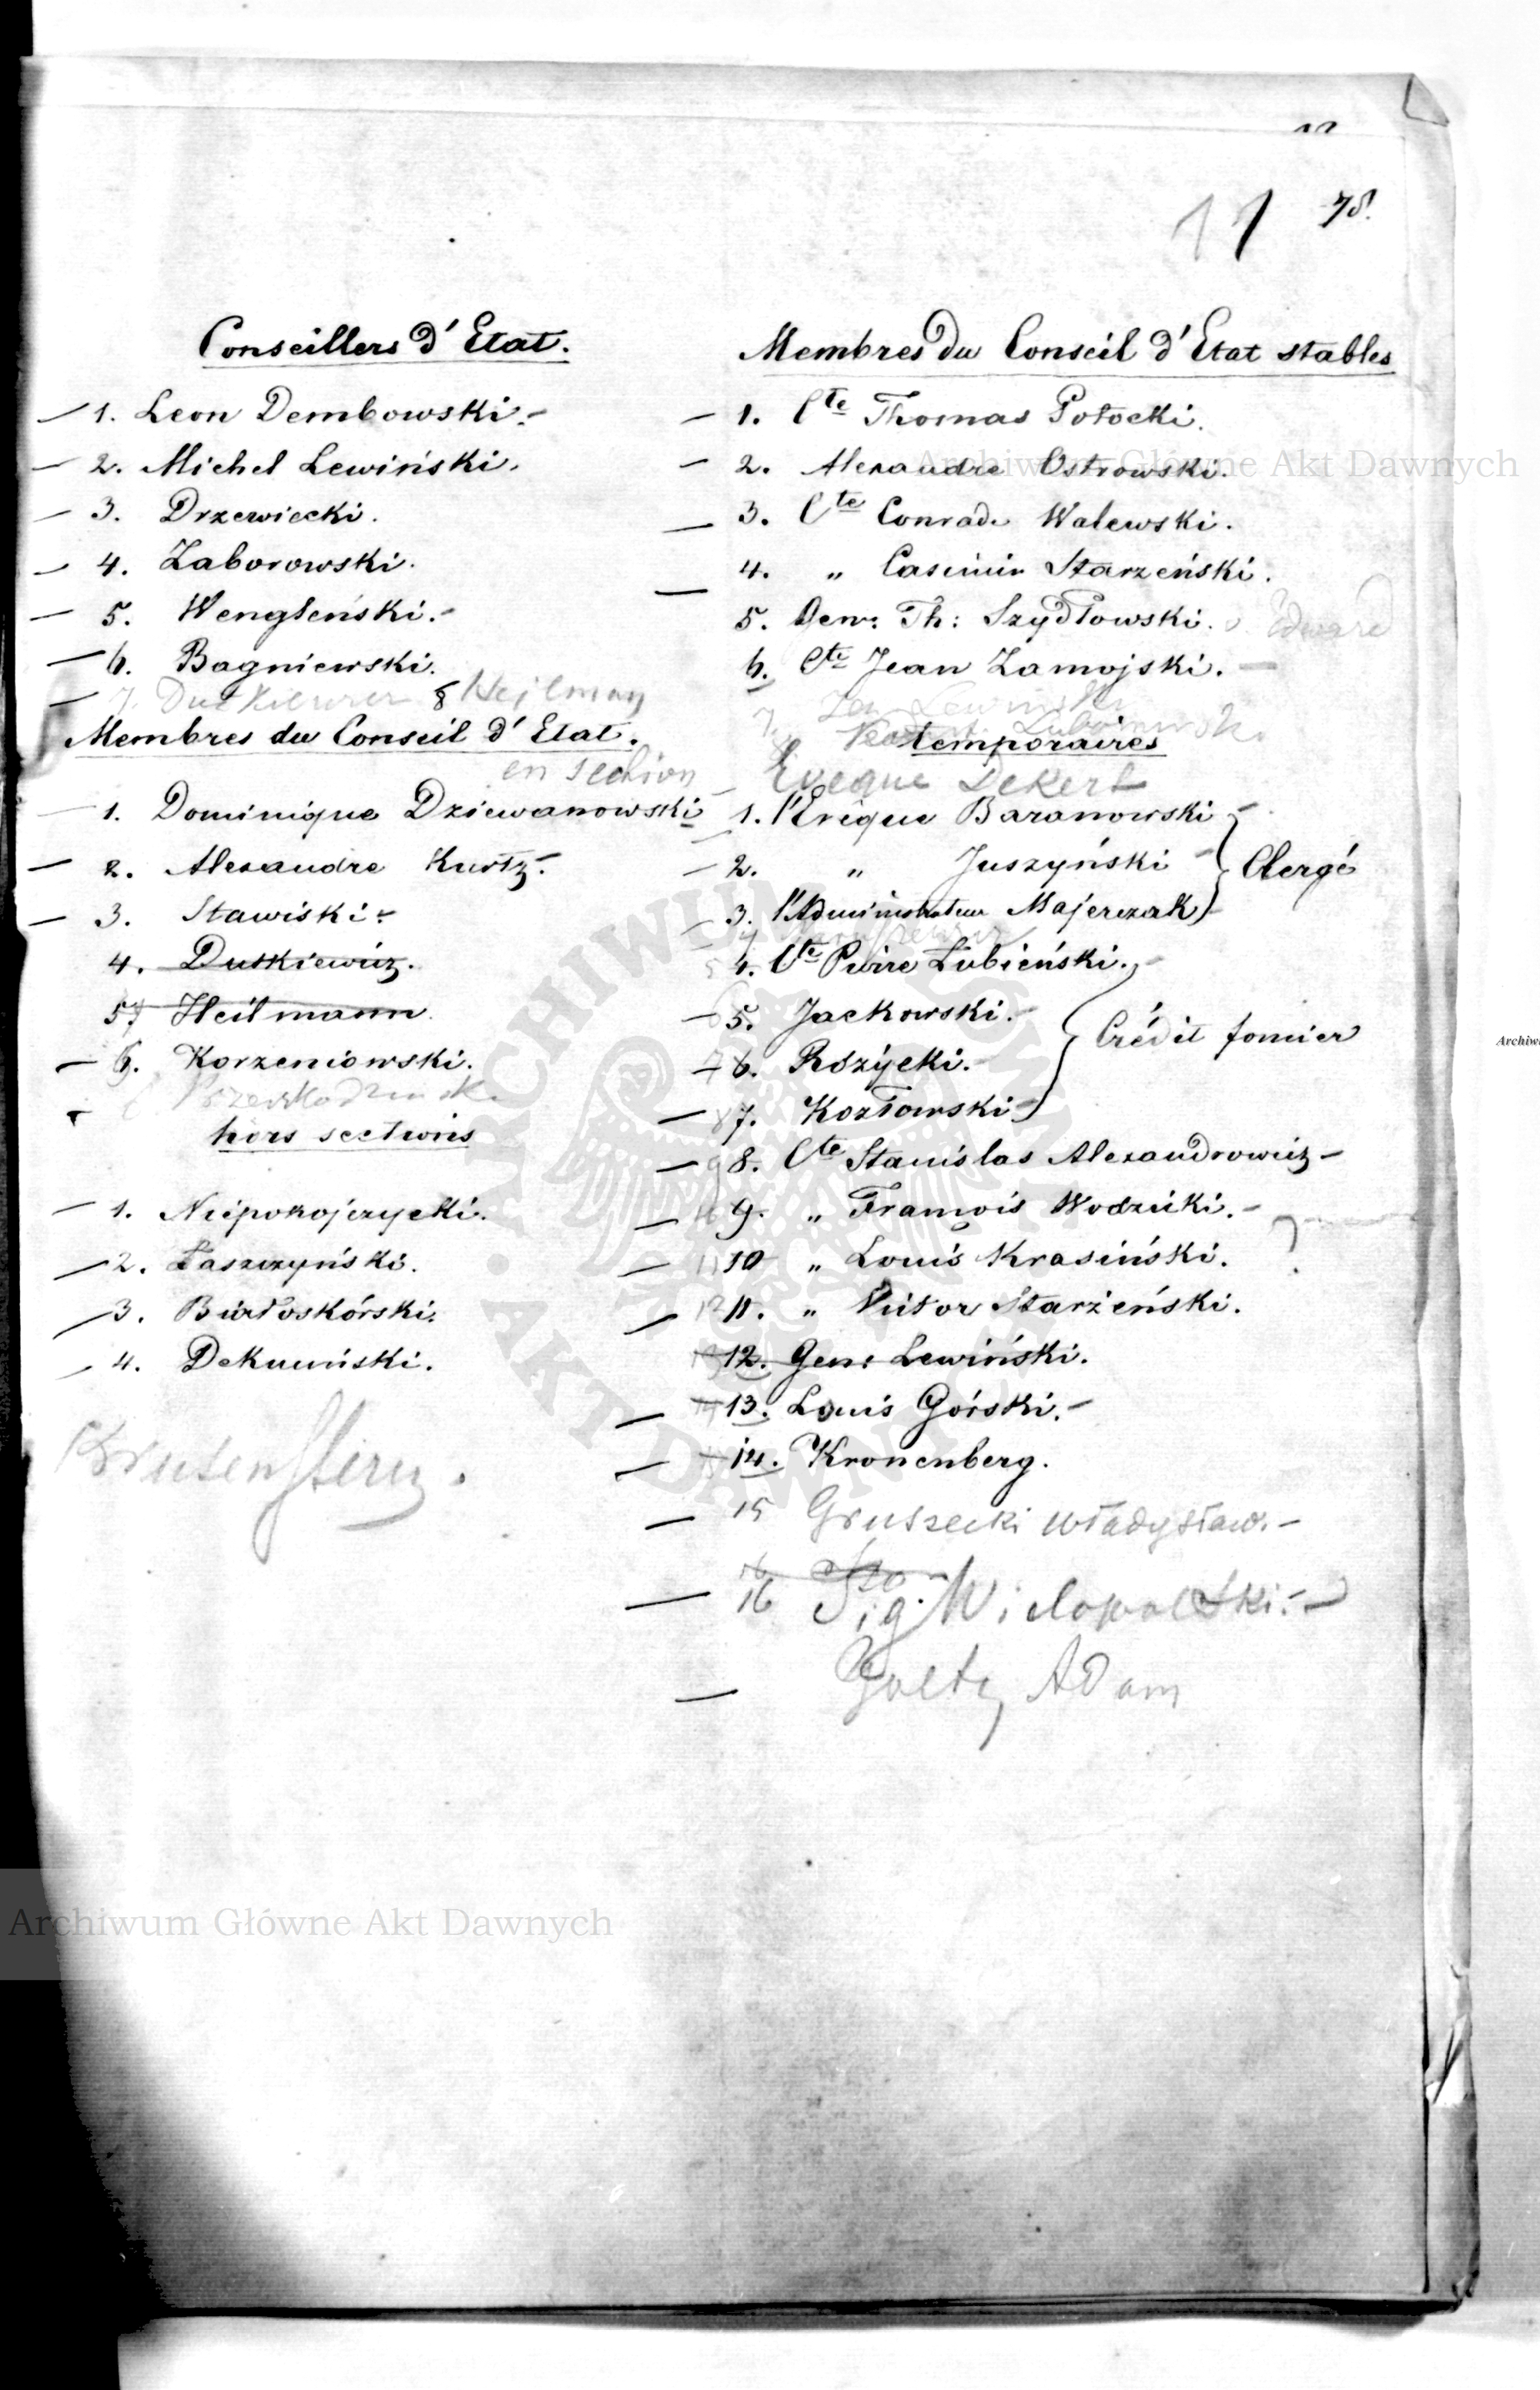 11 78.
Conseillers d'Etat.
1. Leon Dembowski.
2. Michel Lewiński.
3. Drzewiecki.
4. Zaborowski.
5. Wengleński.
6. Bagniewski.
7. 8 Hejlman
Membres du Conseil d'Etat.
en section
1. Dominique Dziewanowski
2. Alexandre Kurtz.
3. Stawiski.
4. Dutkiewicz.
5. Heilmann.
6. Korzeniowski.
hors sections
1. Niepokojczycki.
2. Łaszczyński.
3. Białoskórski.
4. Dekuciński.
Krusenstern.
Membres du Conseil d'Etat stables
1. Cte Thomas Potocki.
2. Alexandre Ostrowski.
3. Cte Conrad Walewski.
4. „ Casimir Starzeński.
5. Gen: Th: Szydłowski. Edward
6. Cte Jean Zamojski.
7. Lubomirski
temporaires
Eveque Dekert
1. l'Evêque Baranowski
2. „ Juszyński
3. l'Administrateur Majerczak
Clergé
4. Cte Pierre Łubieński.
5. Jackowski.
6. Rożycki.
7. Kozłowski
Crédit foncier
8. Cte Stanislas Alexandrowicz
9. „ François Wodzicki.
10 „ Louis Krasiński. ?
11. „ Victor Starzeński.
12. Gen: Lewiński.
13. Louis Górski.
14. Kronenberg.
15 Gruszecki Władysław.
16 Sig. Wielopolski.
Goltz Adam
Archiwum Główne Akt Dawnych
Archiwum Główne Akt Dawnych
ARCHIWUM GŁÓWNE AKT DAWNYCH